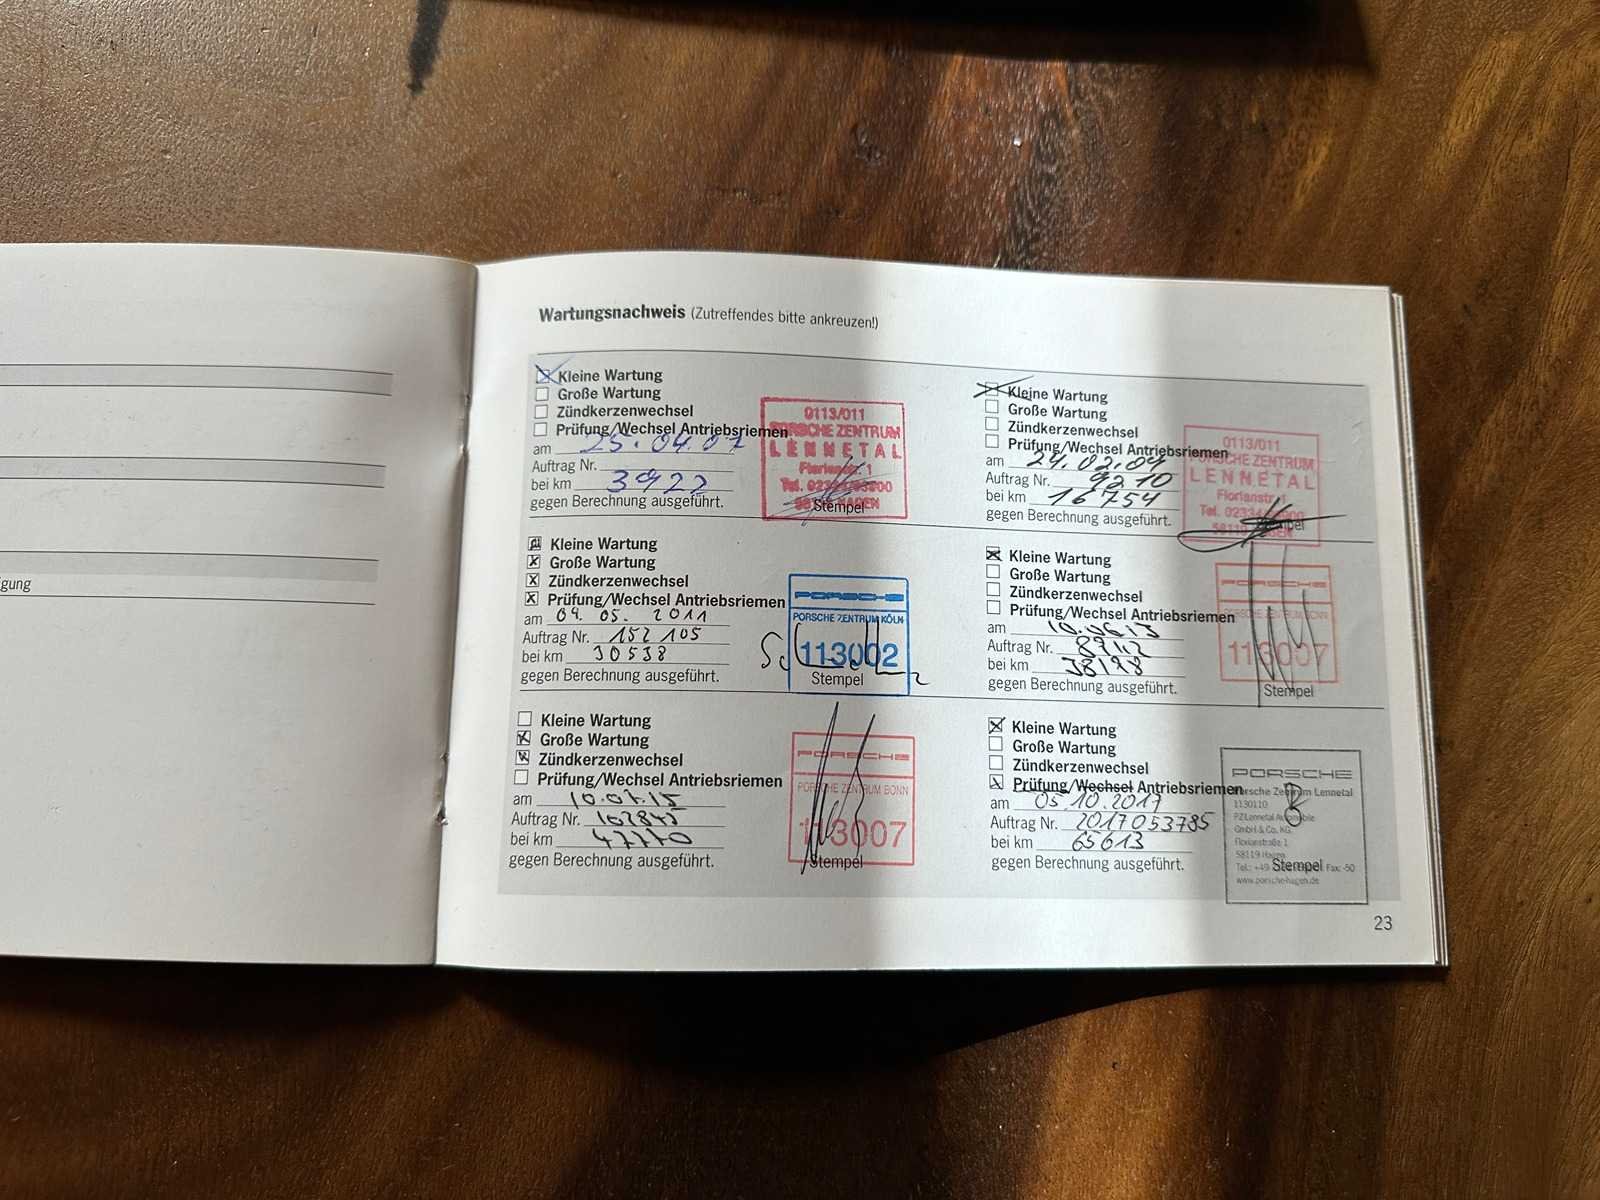 Wartungsnachweis (Zutreffendes bitte ankreuzen!)
Kleine Wartung
Große Wartung
Zündkerzenwechsel
Prüfung/Wechsel Antriebsriemen
am 25.04.07
Auftrag Nr.
bei km 3922
gegen Berechnung ausgeführt.
0113/011
PORSCHE ZENTRUM
LENNETAL
Florianstr. 1
Stempel
Kleine Wartung
Große Wartung
Zündkerzenwechsel
Prüfung/Wechsel Antriebsriemen
am 24.02.09
Auftrag Nr. 9210
bei km 16754
gegen Berechnung ausgeführt.
0113/011
PORSCHE ZENTRUM
LENNETAL
Florianstr. 1
Stempel
Kleine Wartung
Große Wartung
Zündkerzenwechsel
Prüfung/Wechsel Antriebsriemen
am 04. 05. 2011
Auftrag Nr. 152105
bei km 30538
gegen Berechnung ausgeführt.
PORSCHE
PORSCHE ZENTRUM KÖLN
113002
Stempel
Kleine Wartung
Große Wartung
Zündkerzenwechsel
Prüfung/Wechsel Antriebsriemen
am 10.06.13
Auftrag Nr.
bei km
gegen Berechnung ausgeführt.
PORSCHE
PORSCHE ZENTRUM BONN
113007
Stempel
Kleine Wartung
Große Wartung
Zündkerzenwechsel
Prüfung/Wechsel Antriebsriemen
am 10.07.15
Auftrag Nr. 162845
bei km 47770
gegen Berechnung ausgeführt.
PORSCHE
PORSCHE ZENTRUM BONN
113007
Stempel
Kleine Wartung
Große Wartung
Zündkerzenwechsel
Prüfung/Wechsel Antriebsriemen
am 05.10.2017
Auftrag Nr. 2017053785
bei km 65613
gegen Berechnung ausgeführt.
PORSCHE
Porsche Zentrum Lennetal
1130110
PZ Lennetal Automobile
GmbH & Co. KG.
Florianstraße 1
58119 Hagen
Tel.: +49 Fax: -50
Stempel
www.porsche-hagen.de
gung
23